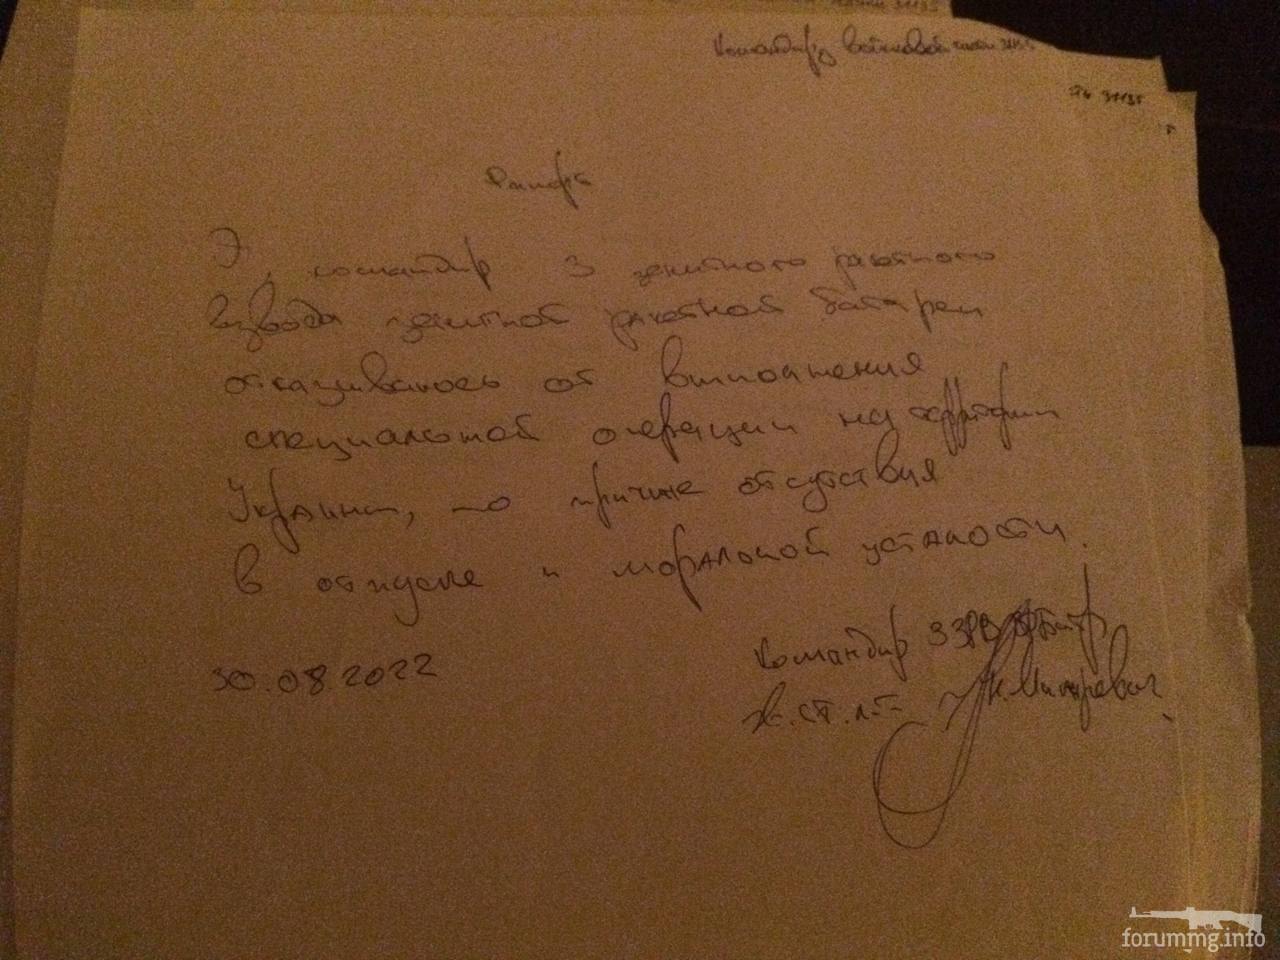 части 31135
Командиру войсковой части 31135
в/ч 31135
Рапорт
Я, командир 3 зенитного ракетного
взвода зенитной ракетной батареи
отказываюсь от выполнения
специальной операции на территории
Украины, по причине отсутствия
в отпуске и моральной усталости.
Командир 3 ЗРВ ЗРБатр
30.08.2022
гв. ст. л-т
forummg.info